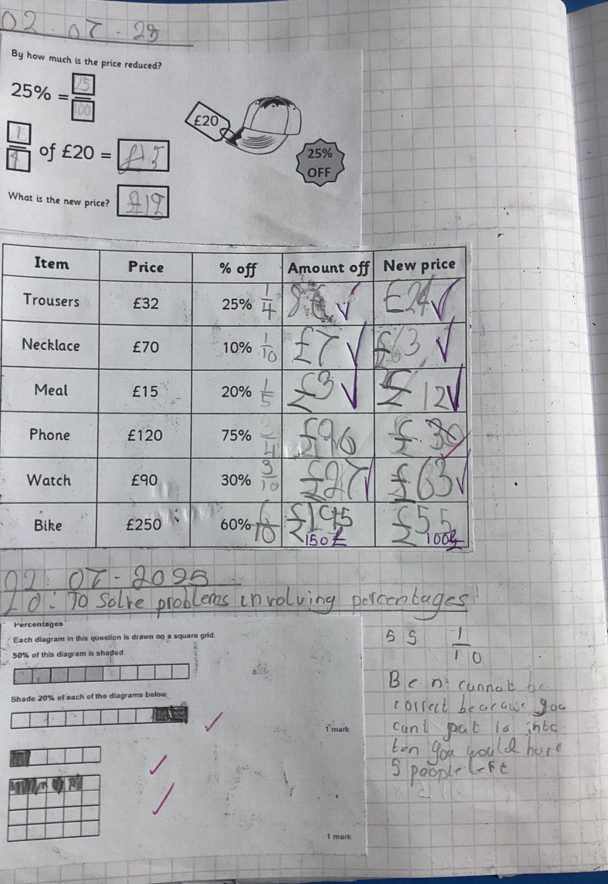 02.07.25
By how much is the price reduced?
25% = 25/100
£20
25% OFF
1/4 of £20 = £15
What is the new price?
Item Price % off Amount off New price
Trousers £32 25% 1/4 8£ £24
Necklace £70 10% 1/10 £7 £63
Meal £15 20% 1/5 £3 £12
Phone £120 75% £90 £30
Watch £90 30% 3/10 £27 £63
Bike £250 60% 6/10 150£ 100£
02.07-2025
LO: To Solve problems involving percentages
Percentages
Each diagram in this question is drawn on a square grid.
50% of this diagram is shaded.
Shade 20% of each of the diagrams below.
1 mark
1 mark
5 5 1/10
Ben cannot be
correct bearause you
cant put 15 into
ten you would have
5 poople left